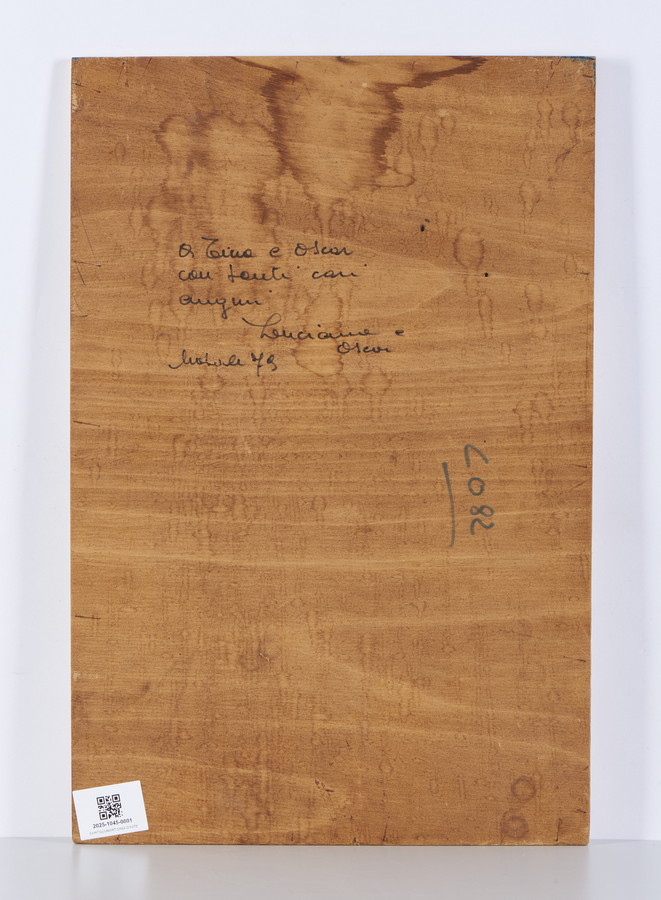 a Tina e Oscar
con tanti cari
auguri
Luciana e
Oscar
Natale 79
2807
2025-1045-0001